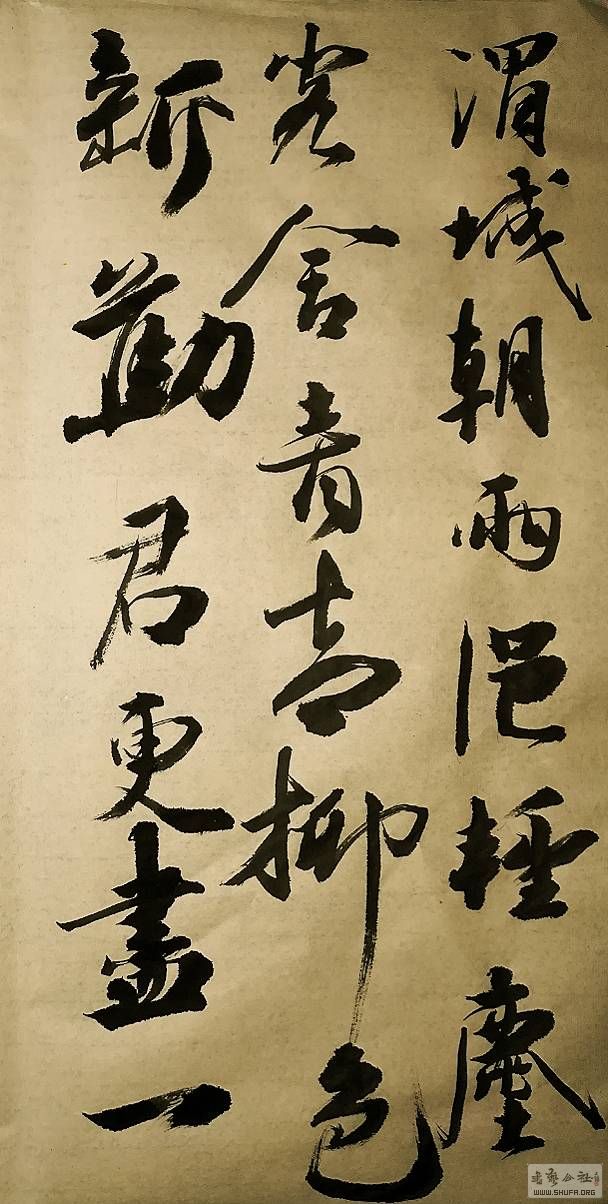 渭城朝雨浥輕塵
客舍青青柳色
新勸君更盡一
書藝公社
WWW.SHUFA.ORG